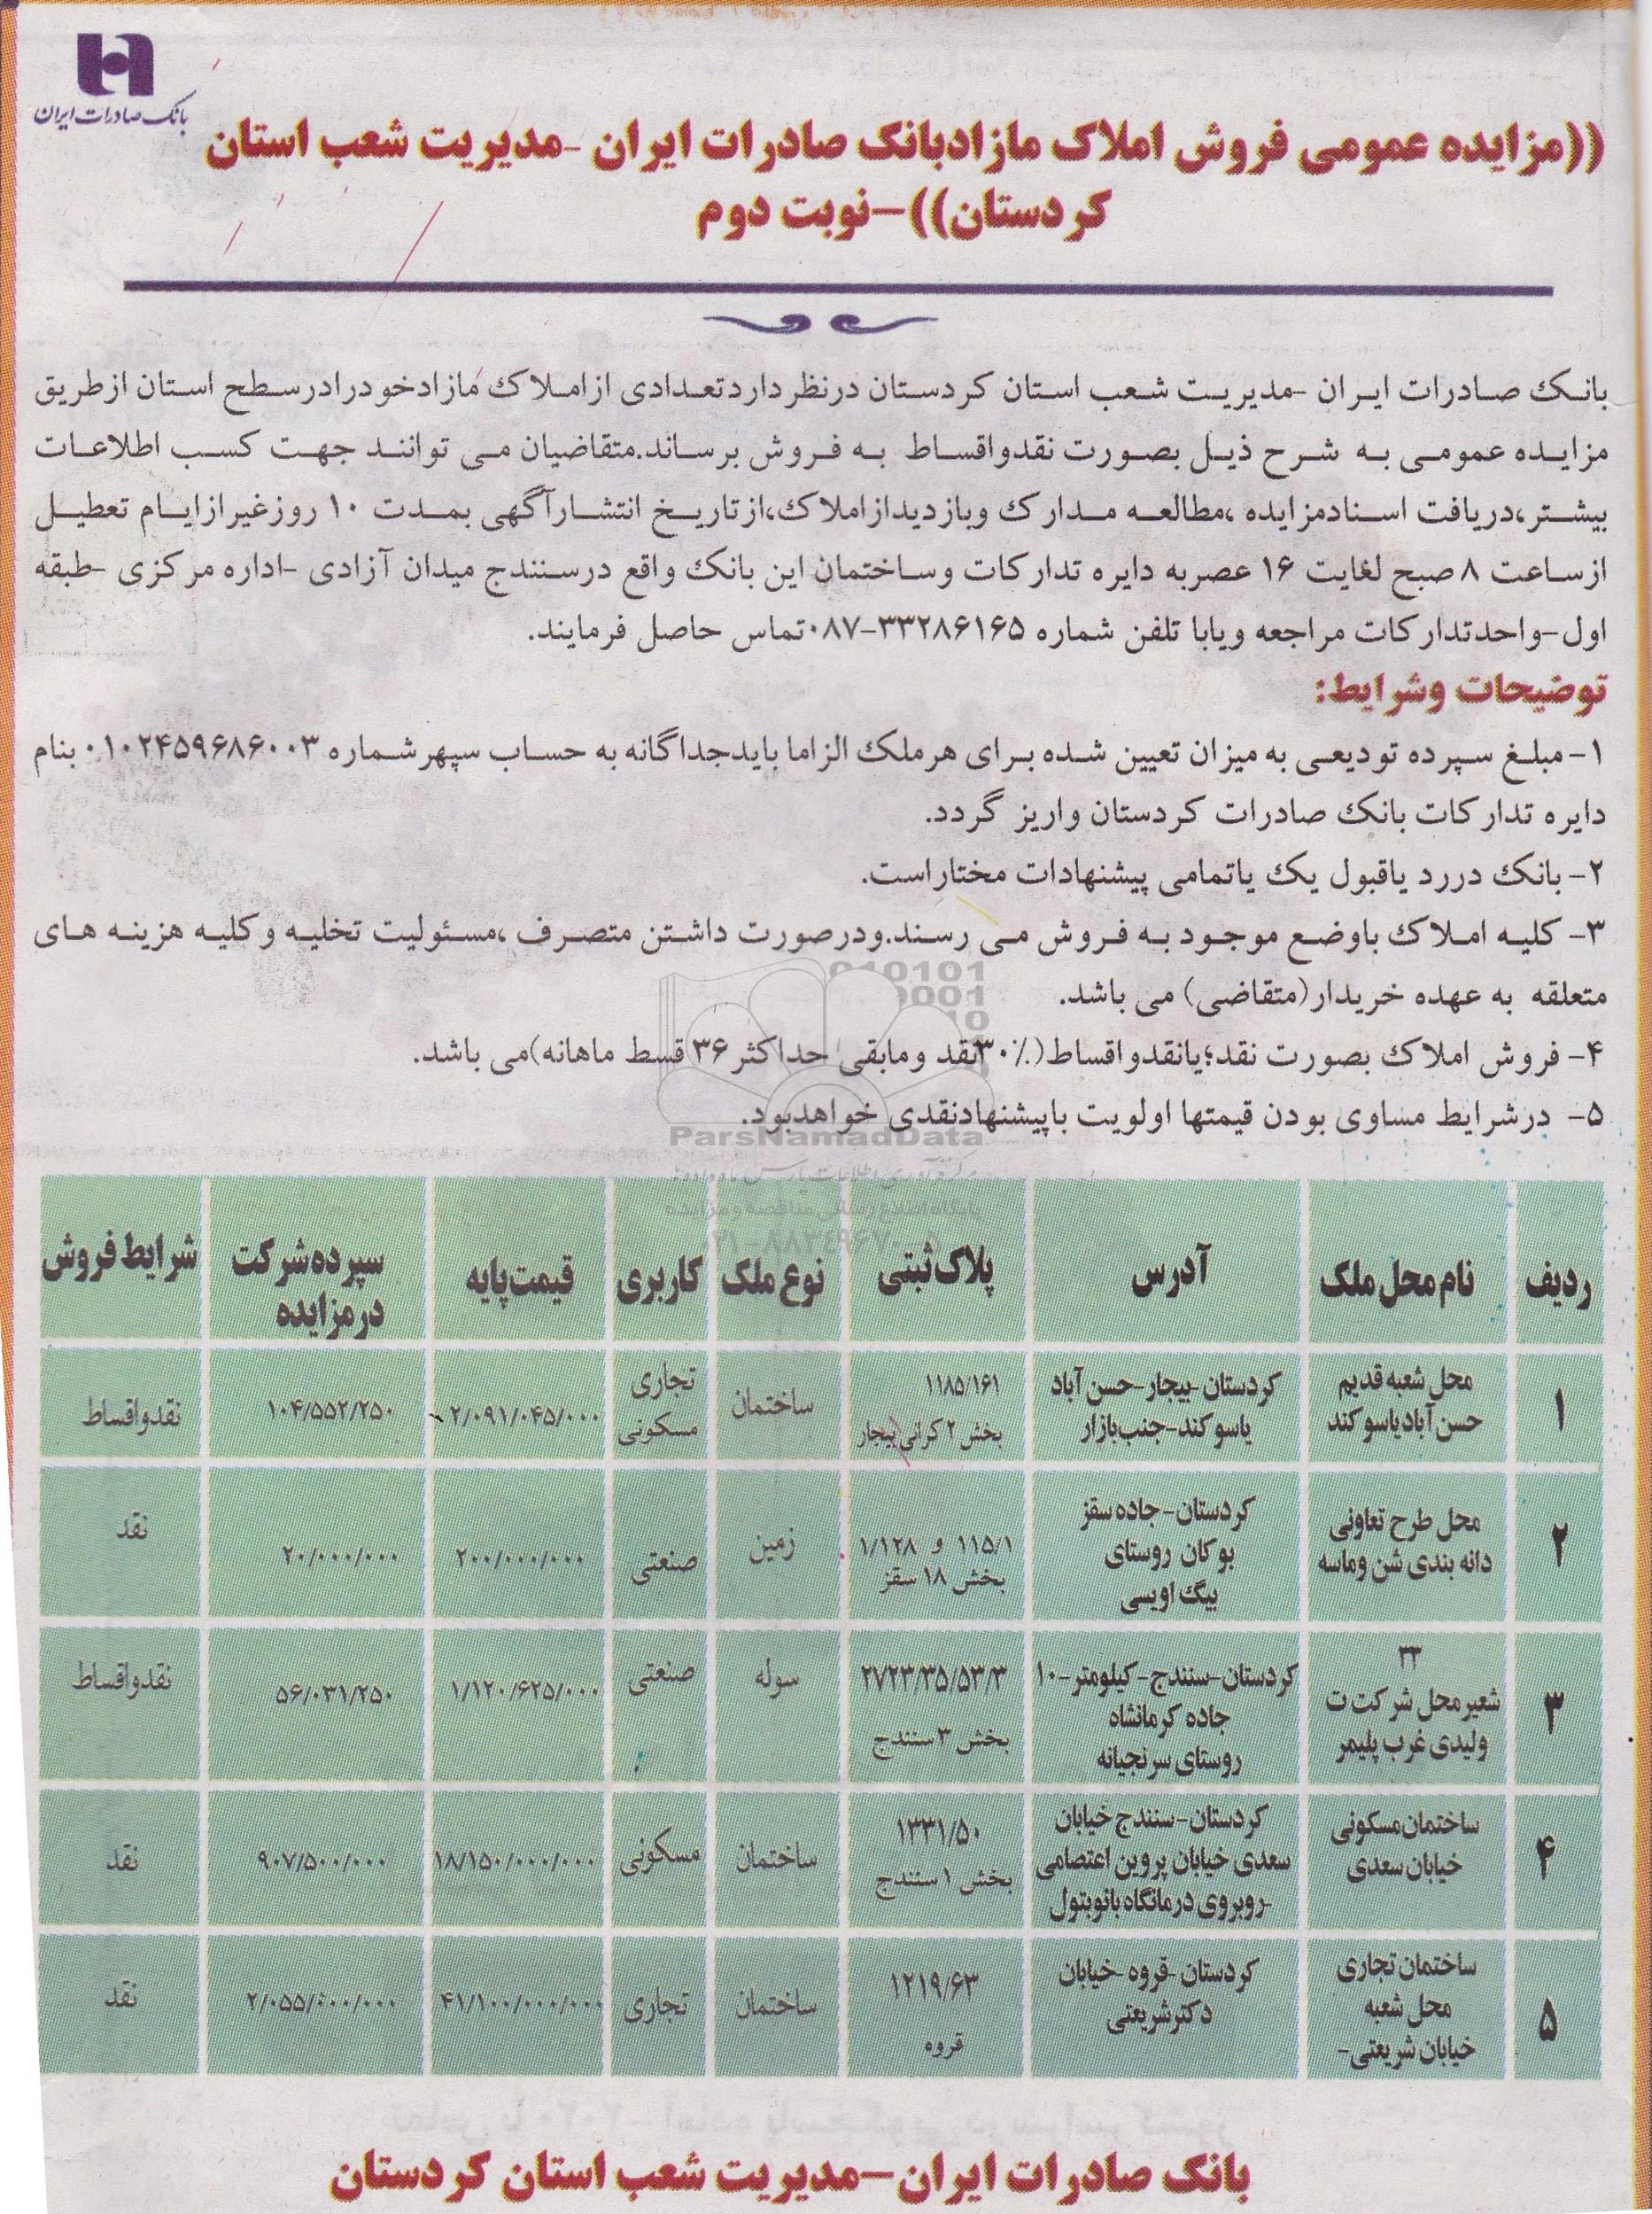 بانک صادرات ایران
((مزایده عمومی فروش املاک مازادبانک صادرات ایران -مدیریت شعب استان
کردستان))-نوبت دوم
بانک صادرات ایران -مدیریت شعب استان کردستان درنظرداردتعدادی ازاملاک مازادخودرادرسطح استان ازطریق
مزایده عمومی به شرح ذیل بصورت نقدواقساط به فروش برساند.متقاضیان می توانند جهت کسب اطلاعات
بیشتر،دریافت اسنادمزایده ،مطالعه مدارک وبازدیدازاملاک،ازتاریخ انتشارآگهی بمدت ۱۰ روزغیرازایام تعطیل
ازساعت ۸ صبح لغایت ۱۶ عصربه دایره تدارکات وساختمان این بانک واقع درسنندج میدان آزادی -اداره مرکزی -طبقه
اول-واحدتدارکات مراجعه ویابا تلفن شماره ۳۳۲۸۶۱۶۵-۰۸۷تماس حاصل فرمایند.
توضیحات وشرایط:
۱- مبلغ سپرده تودیعی به میزان تعیین شده برای هرملک الزاما بایدجداگانه به حساب سپهرشماره ۰۱۰۲۴۵۹۶۸۶۰۰۳ بنام
دایره تدارکات بانک صادرات کردستان واریز گردد.
۲- بانک دررد یاقبول یک یاتمامی پیشنهادات مختاراست.
۳- کلیه املاک باوضع موجود به فروش می رسند.ودرصورت داشتن متصرف ،مسئولیت تخلیه وکلیه هزینه های
متعلقه به عهده خریدار(متقاضی) می باشد.
۴- فروش املاک بصورت نقد؛یانقدواقساط(۳۰٪نقد ومابقی حداکثر ۳۶ قسط ماهانه)می باشد.
۵- درشرایط مساوی بودن قیمتها اولویت باپیشنهادنقدی خواهدبود.
ParsNamadData
پایگاه اطلاع رسانی مناقصه و مزایده
۰۲۱-۸۸۳۴۹۶۷۰-۵
ردیف نام محل ملک آدرس پلاک ثبتی نوع ملک کاربری قیمت پایه سپرده شرکت درمزایده شرایط فروش
۱ محل شعبه قدیم حسن آبادیاسوکند کردستان-بیجار-حسن آباد یاسوکند-جنب بازار ۱۱۸۵/۱۶۱ بخش ۲ کرانی بیجار ساختمان تجاری مسکونی ۲/۰۹۱/۰۴۵/۰۰۰ ۱۰۴/۵۵۲/۲۵۰ نقدواقساط
۲ محل طرح تعاونی دانه بندی شن وماسه کردستان-جاده سقز بوکان روستای بیگ اویسی ۱۱۵/۱ و ۱/۱۲۸ بخش ۱۸ سقز زمین صنعتی ۲۰۰/۰۰۰/۰۰۰ ۲۰/۰۰۰/۰۰۰ نقد
۳ ۳۳ شعیرمحل شرکت ت ولیدی غرب پلیمر کردستان-سنندج-کیلومتر-۱۰ جاده کرمانشاه روستای سرنجیانه ۲۷۲۳/۳۵/۵۳/۳ بخش ۳ سنندج سوله صنعتی ۱/۱۲۰/۶۲۵/۰۰۰ ۵۶/۰۳۱/۲۵۰ نقدواقساط
۴ ساختمان مسکونی خیابان سعدی کردستان-سنندج خیابان سعدی خیابان پروین اعتصامی -روبروی درمانگاه بانوبتول ۱۳۳۱/۵۰ بخش ۱ سنندج ساختمان مسکونی ۱۸/۱۵۰/۰۰۰/۰۰۰ ۹۰۷/۵۰۰/۰۰۰ نقد
۵ ساختمان تجاری محل شعبه خیابان شریعتی- کردستان-قروه-خیابان دکترشریعتی ۱۲۱۹/۶۳ قروه ساختمان تجاری ۴۱/۱۰۰/۰۰۰/۰۰۰ ۲/۰۵۵/۰۰۰/۰۰۰ نقد
بانک صادرات ایران-مدیریت شعب استان کردستان